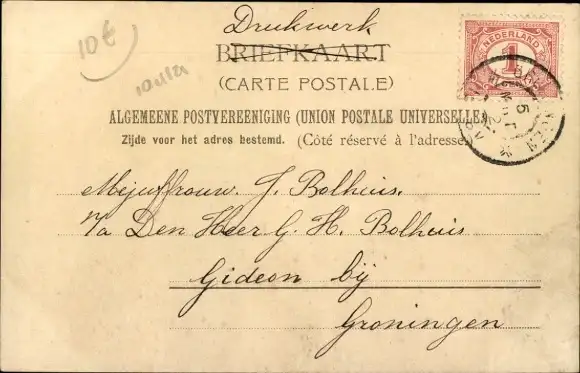 Drukwerk
BRIEFKAART
(CARTE POSTALE)
ALGEMEENE POSTVEREENIGING (UNION POSTALE UNIVERSELLE)
Zijde voor het adres bestemd. (Côté réservé à l'adresse.)
NEDERLAND
1
10€
Mejuffrouw. J. Bolhuis.
P/a Den Heer G. H. Bolhuis
Gideon bij
Groningen